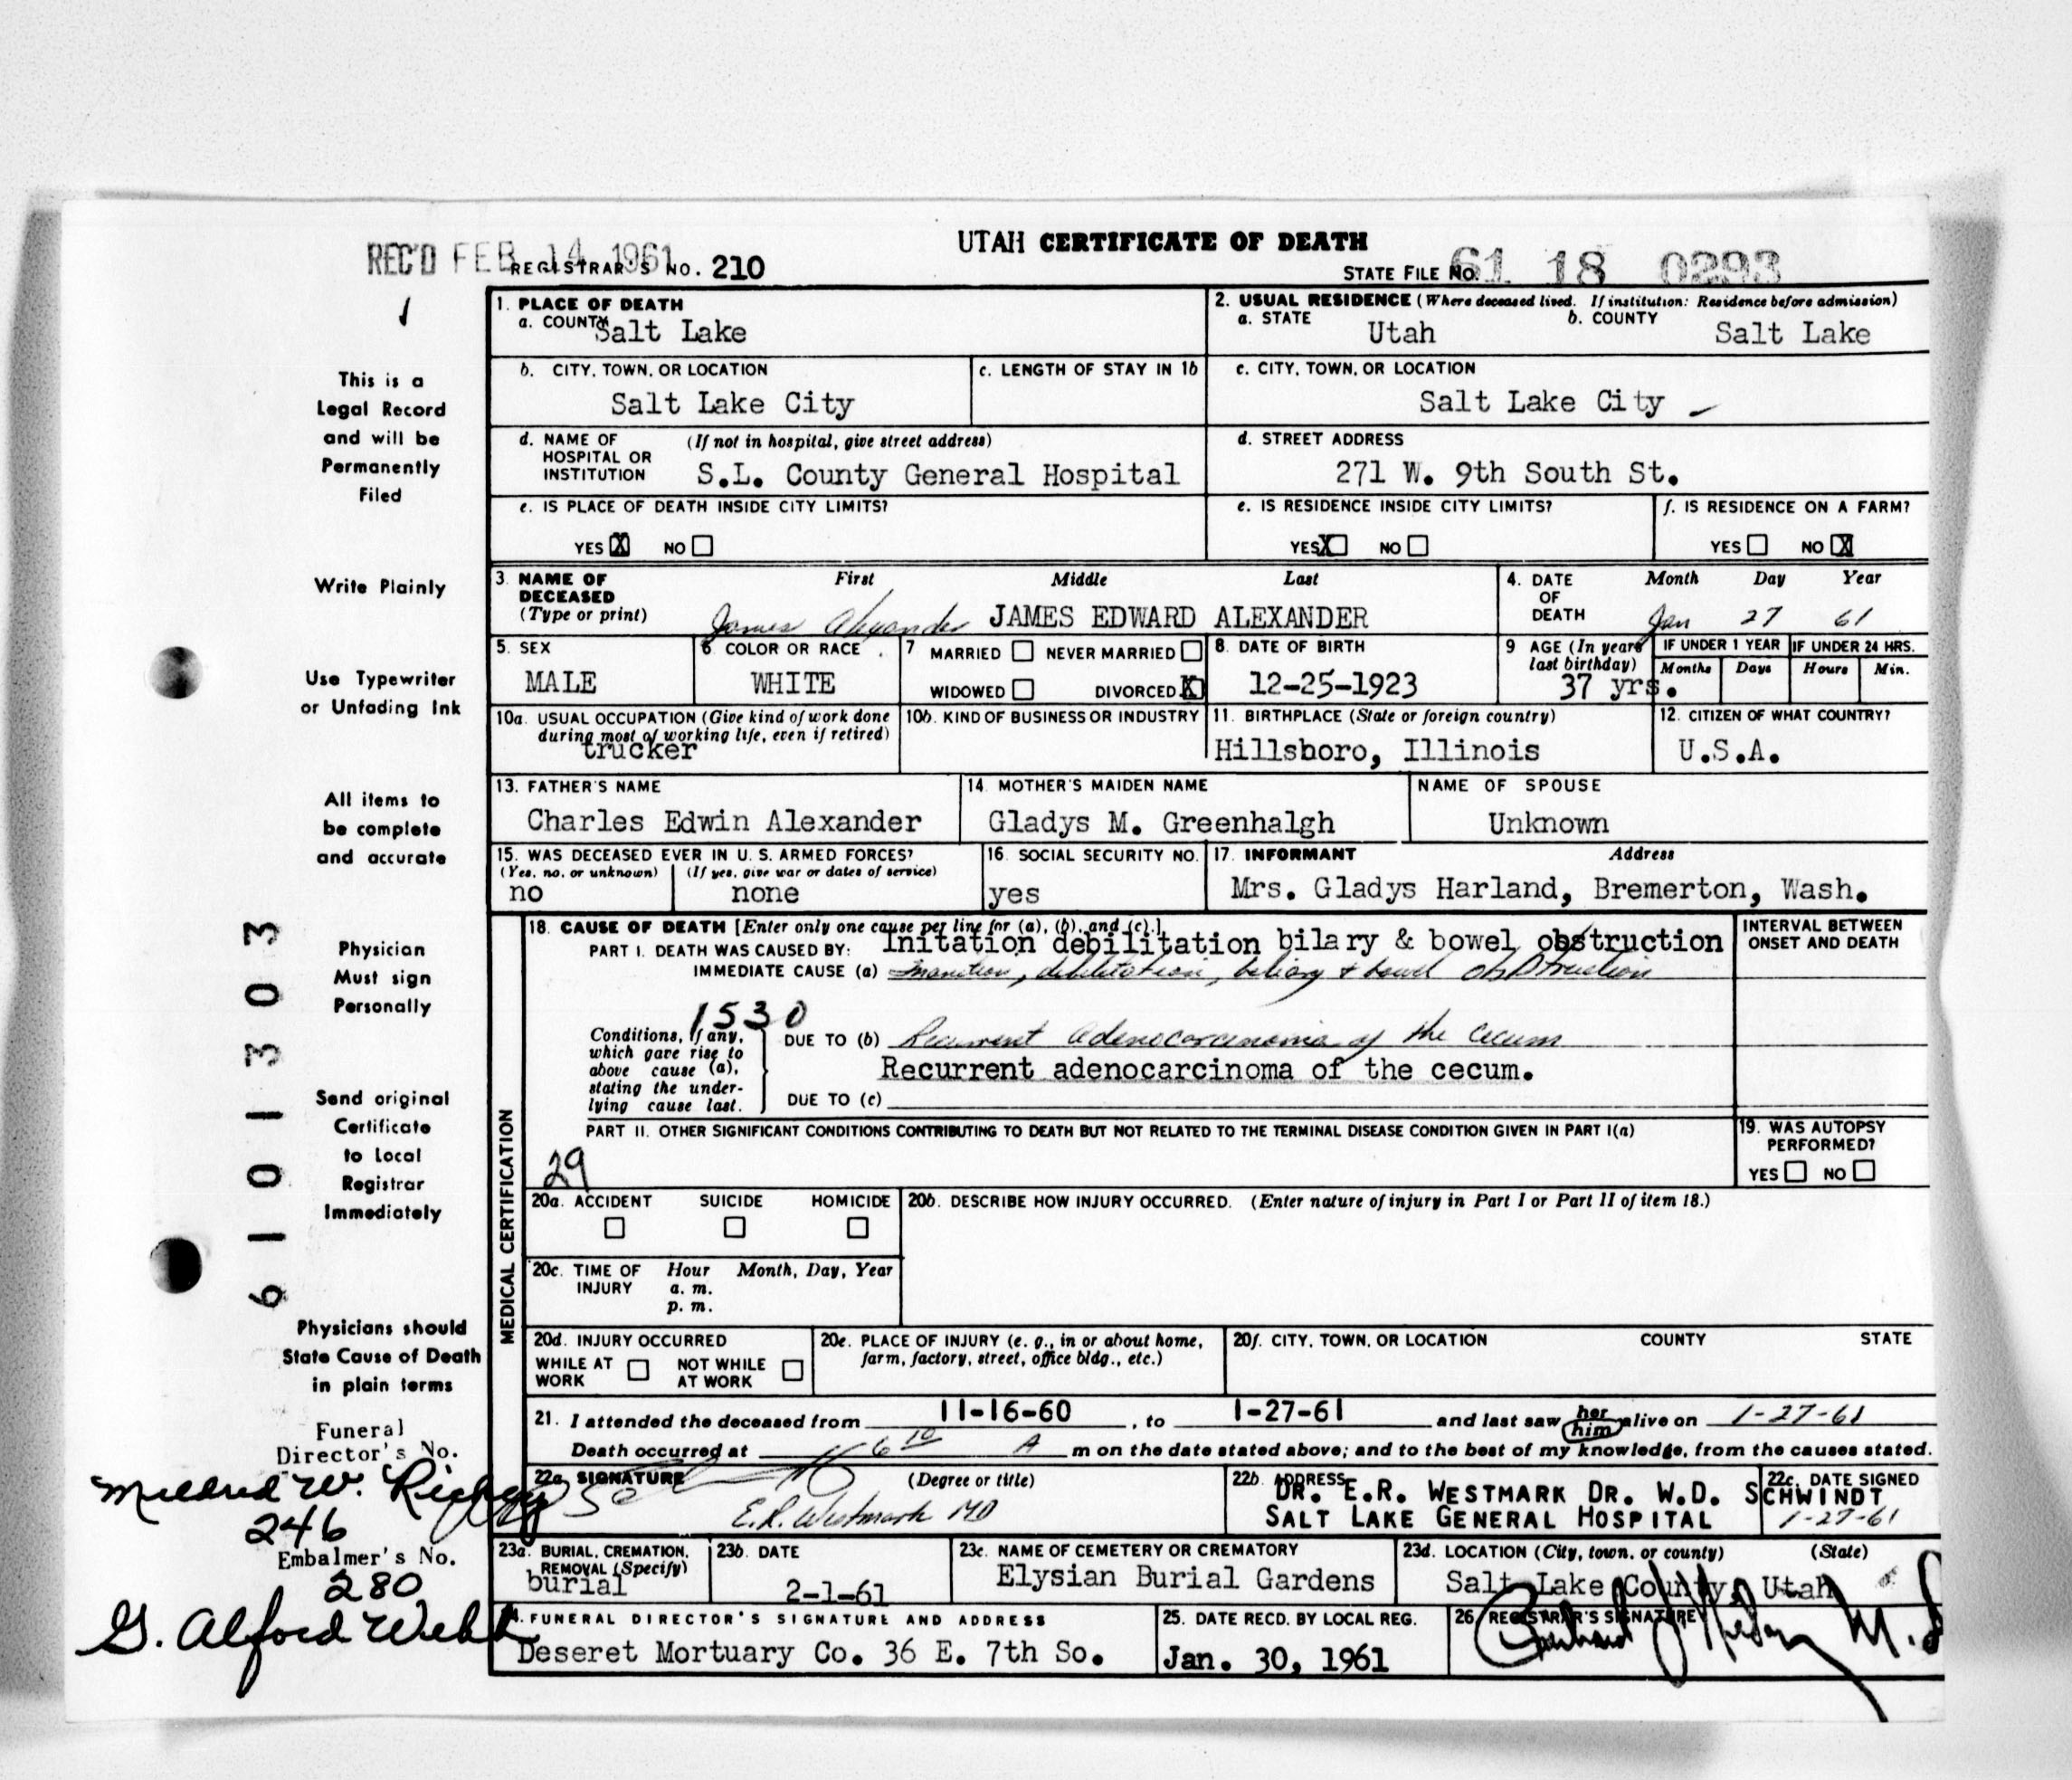 UTAH CERTIFICATE OF DEATH
REC'D FEB 14 1961
REGISTRAR'S NO. 210
STATE FILE NO. 61 18 0293
1. PLACE OF DEATH
a. COUNTY Salt Lake
2. USUAL RESIDENCE (Where deceased lived. If institution: Residence before admission)
a. STATE Utah b. COUNTY Salt Lake
This is a
Legal Record
and will be
Permanently
Filed
b. CITY, TOWN, OR LOCATION
Salt Lake City
c. LENGTH OF STAY IN 1b
c. CITY, TOWN, OR LOCATION
Salt Lake City
d. NAME OF HOSPITAL OR INSTITUTION (If not in hospital, give street address)
S.L. County General Hospital
d. STREET ADDRESS
271 W. 9th South St.
e. IS PLACE OF DEATH INSIDE CITY LIMITS?
YES X NO
e. IS RESIDENCE INSIDE CITY LIMITS?
YES X NO
f. IS RESIDENCE ON A FARM?
YES NO X
Write Plainly
3. NAME OF DECEASED (Type or print)
First Middle Last
James Alexander JAMES EDWARD ALEXANDER
4. DATE OF DEATH
Month Day Year
Jan 27 61
Use Typewriter
or Unfading Ink
5. SEX
MALE
6 COLOR OR RACE
WHITE
7 MARRIED NEVER MARRIED
WIDOWED DIVORCED X
8. DATE OF BIRTH
12-25-1923
9 AGE (In years last birthday)
37 yrs.
IF UNDER 1 YEAR
Months Days
IF UNDER 24 HRS.
Hours Min.
10a. USUAL OCCUPATION (Give kind of work done during most of working life, even if retired)
trucker
10b. KIND OF BUSINESS OR INDUSTRY
11. BIRTHPLACE (State or foreign country)
Hillsboro, Illinois
12. CITIZEN OF WHAT COUNTRY?
U.S.A.
All items to
be complete
and accurate
13. FATHER'S NAME
Charles Edwin Alexander
14. MOTHER'S MAIDEN NAME
Gladys M. Greenhalgh
NAME OF SPOUSE
Unknown
15. WAS DECEASED EVER IN U. S. ARMED FORCES?
(Yes, no, or unknown) (If yes, give war or dates of service)
no none
16. SOCIAL SECURITY NO.
yes
17. INFORMANT Address
Mrs. Gladys Harland, Bremerton, Wash.
6101303
MEDICAL CERTIFICATION
Physician
Must sign
Personally
18. CAUSE OF DEATH [Enter only one cause per line for (a), (b), and (c).]
PART I. DEATH WAS CAUSED BY: Initation debilitation bilary & bowel obstruction
IMMEDIATE CAUSE (a) Inanition, debilitation, biliary & bowel obstruction
INTERVAL BETWEEN
ONSET AND DEATH
1530
Conditions, if any,
which gave rise to
above cause (a),
stating the under-
lying cause last.
DUE TO (b) Recurrent adenocarcinoma of the cecum
Recurrent adenocarcinoma of the cecum.
DUE TO (c)
Send original
Certificate
to Local
Registrar
Immediately
PART II. OTHER SIGNIFICANT CONDITIONS CONTRIBUTING TO DEATH BUT NOT RELATED TO THE TERMINAL DISEASE CONDITION GIVEN IN PART I(a)
29
19. WAS AUTOPSY
PERFORMED?
YES NO
20a. ACCIDENT SUICIDE HOMICIDE
20b. DESCRIBE HOW INJURY OCCURRED. (Enter nature of injury in Part I or Part II of item 18.)
20c. TIME OF INJURY
Hour Month, Day, Year
a. m.
p. m.
Physicians should
State Cause of Death
in plain terms
20d. INJURY OCCURRED
WHILE AT WORK NOT WHILE AT WORK
20e. PLACE OF INJURY (e. g., in or about home,
farm, factory, street, office bldg., etc.)
20f. CITY, TOWN, OR LOCATION COUNTY STATE
21. I attended the deceased from 11-16-60, to 1-27-61 and last saw her him alive on 1-27-61
Death occurred at 6 10 A m on the date stated above; and to the best of my knowledge, from the causes stated.
Funeral
Director's No.
Mildred W. Richey
246
22a. SIGNATURE (Degree or title)
E.R. Westmark MD
22b. ADDRESS
DR. E.R. WESTMARK DR. W.D. SCHWINDT
SALT LAKE GENERAL HOSPITAL
22c. DATE SIGNED
1-27-61
Embalmer's No.
280
G. Alford Webb
23a. BURIAL, CREMATION,
REMOVAL (Specify)
burial
23b. DATE
2-1-61
23c. NAME OF CEMETERY OR CREMATORY
Elysian Burial Gardens
23d. LOCATION (City, town, or county) (State)
Salt Lake County, Utah
24. FUNERAL DIRECTOR'S SIGNATURE AND ADDRESS
Deseret Mortuary Co. 36 E. 7th So.
25. DATE RECD. BY LOCAL REG.
Jan. 30, 1961
26. REGISTRAR'S SIGNATURE
M.D